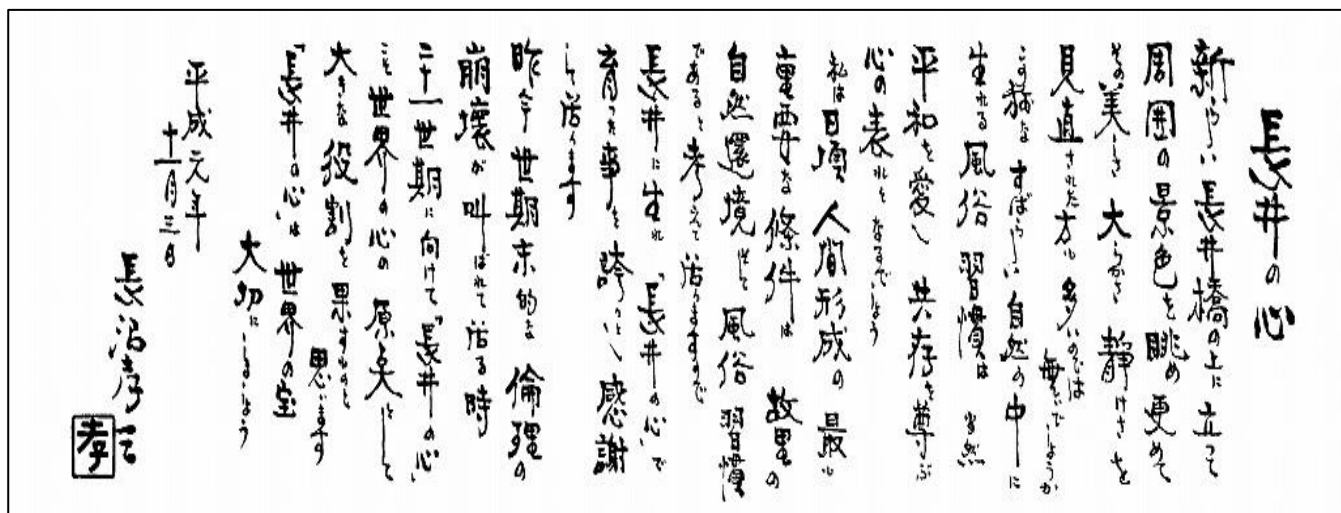 長井の心
新しい長井橋の上に立って
周囲の景色を眺め更めて
その美しさ 大らかさ 静けさを
見直された方も多いのでは
無いでしょうか
この様な すばらしい自然の中に
生れる風俗 習慣は 当然
平和を愛し 共存を尊ぶ
心の表れと なるでしょう
私は日頃 人間形成の最も
重要な條件は 故里の
自然還境 そして 風俗 習慣
であると考えて 居りますので
長井に生れ 「長井の心」で
育った事を 誇りとし 感謝
して居ります
昨今 世期末的な 倫理の
崩壊が叫ばれて居る時
二十一世期に向けて「長井の心」
こそ 世界の心の 原点として
大きな役割を 果すものと
思います
「長井の心」は 世界の宝
大切にしましょう
平成元年
十一月三日
長沼孝
孝